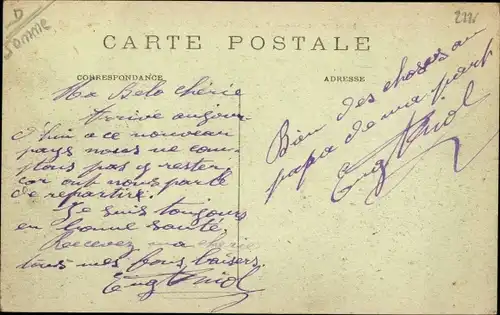 D
Somme
2221
CARTE POSTALE
CORRESPONDANCE
ADRESSE
Ma Belo chérie
Arrive aujour
d'hui a ce nouveau
pays nous ne com
ptons pas y rester
car on nous parle
de repartir.
Je suis toujours
en bonne santé
Recevez ma chérie
tous mes bons baisers.
Eug
Bien des choses au
papa de ma part
Eug